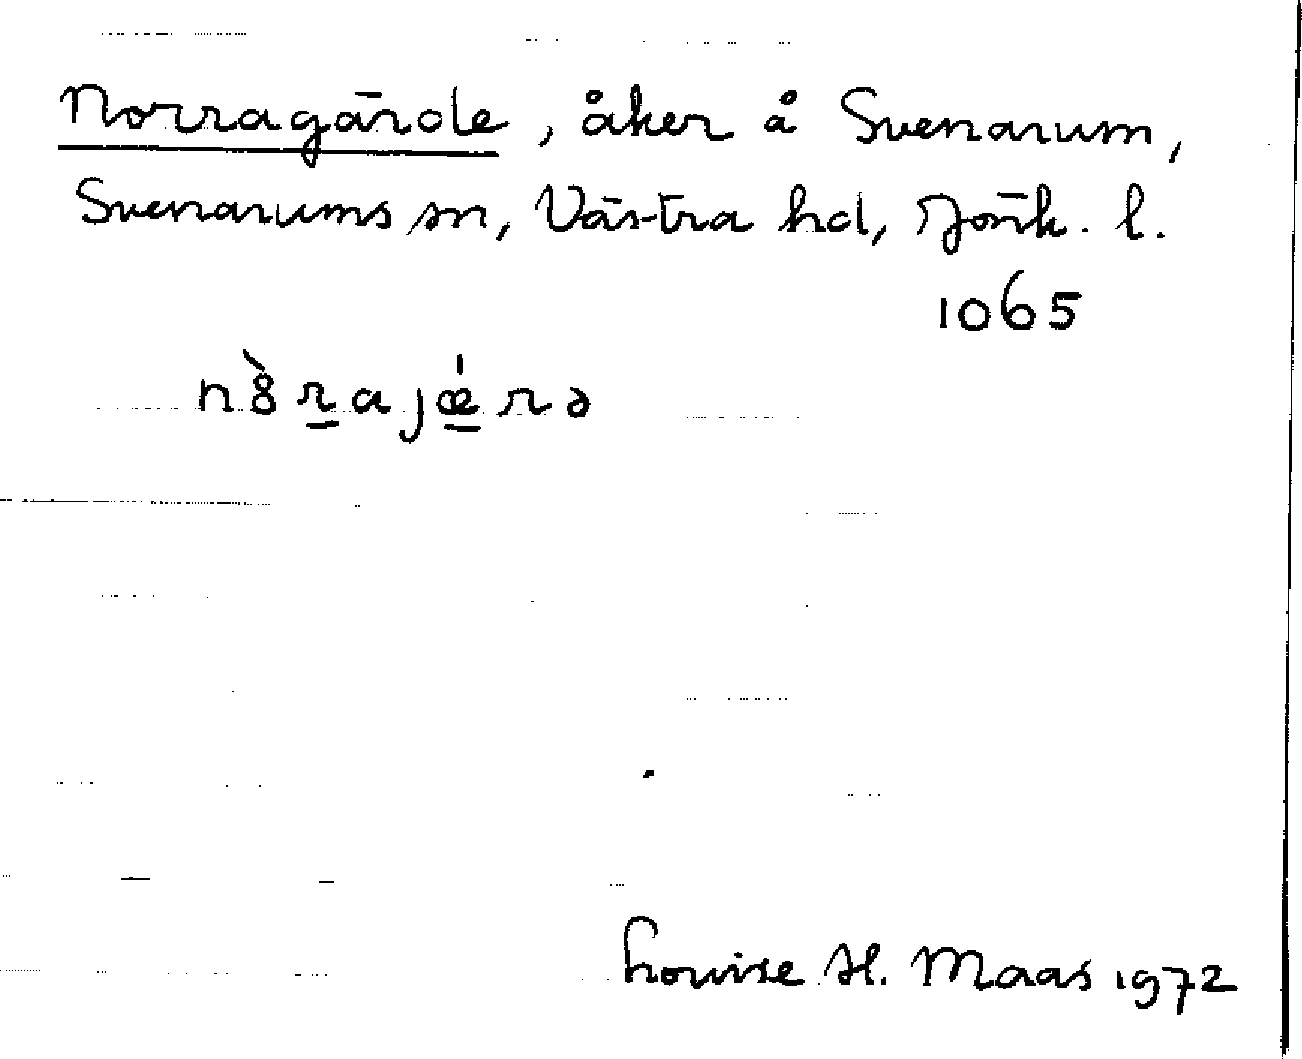 Norragärde, åker å Svenarum,
Svenarums sn, Västra hd, Jönk. l.
1065
n8̀r̲ajǽ̲rə
Louise H. Maas 1972